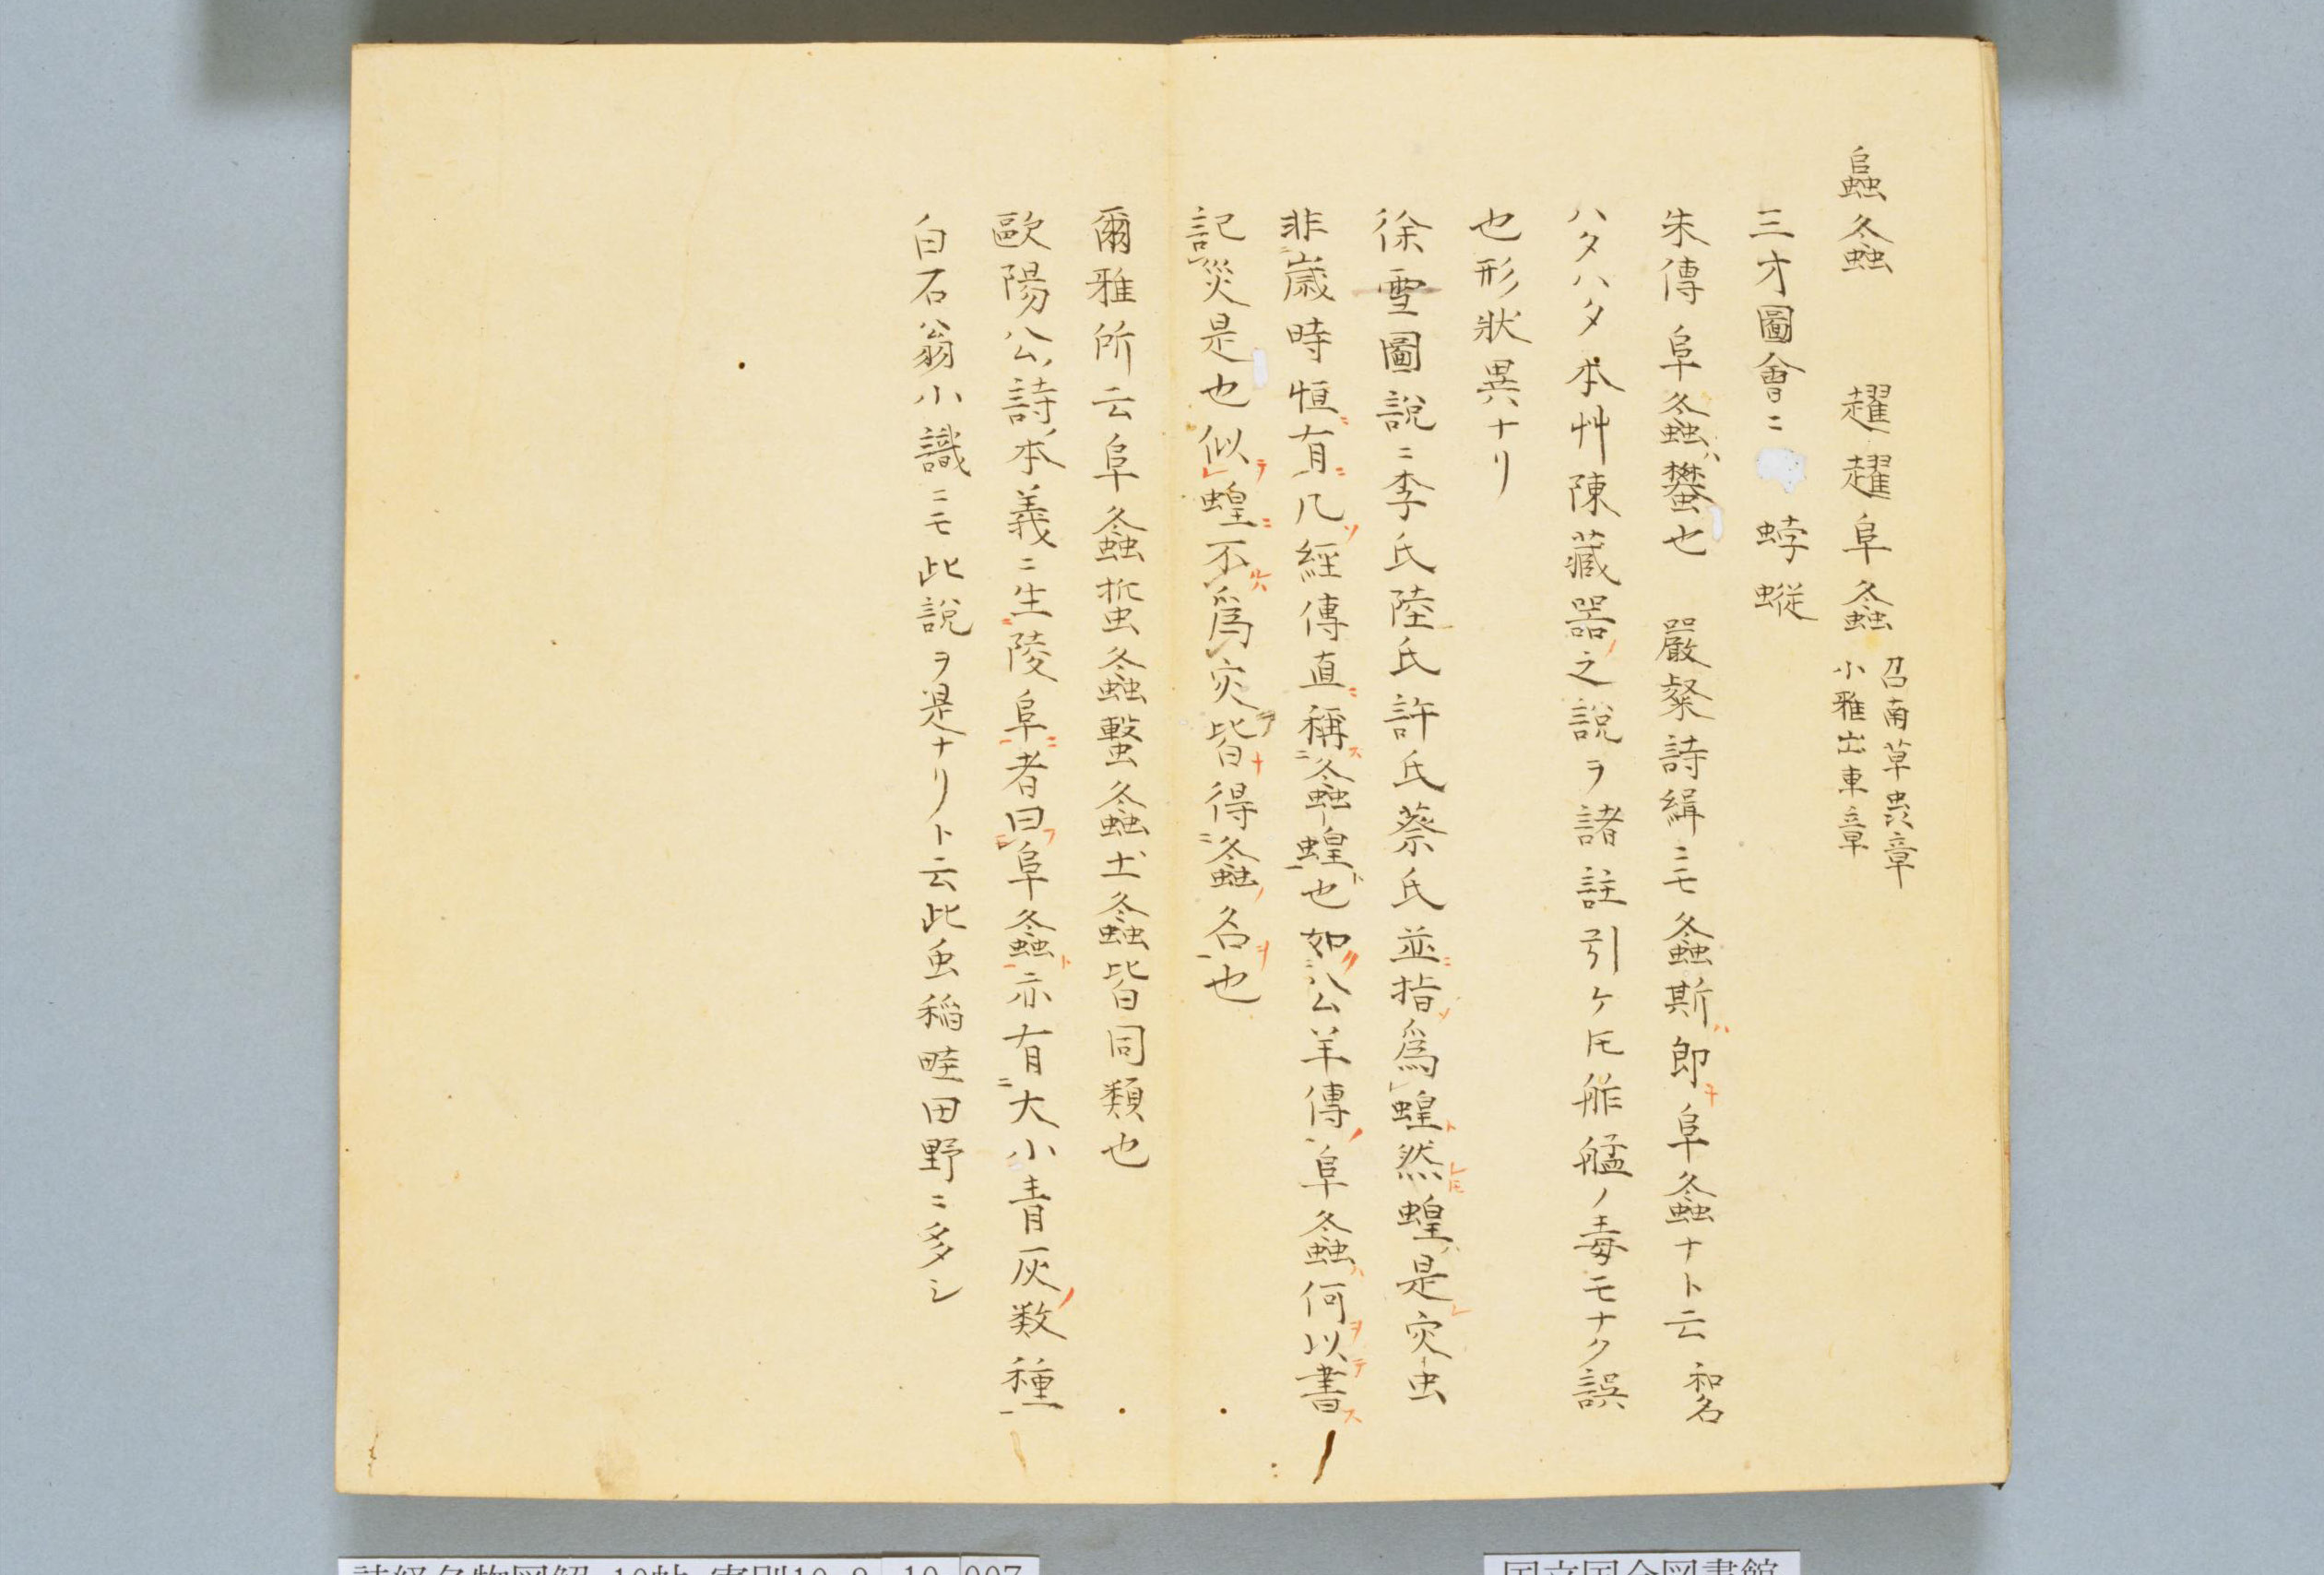 𧒂螽　趯趯阜螽 召南草虫章
小雅出車章
三才圖會ニ　蛑蝬
朱傳阜螽ハ蠜也　嚴粲詩緝ニモ螽斯ハ即チ阜螽ナト云 和名
ハタハタ本艸陳藏器ノ之説ヲ諸註引ケ𪜈舴艋ノ毒モナク誤
也形狀異ナリ
徐雪圖説ニ李氏陸氏許氏蔡氏並ニ指ソ爲レ蝗ト然レ𪜈蝗ハ是レ灾虫
非二歳時恒ニ有一ニ凡ソ經傳直ニ稱スニ螽蝗一ト也如クニ公羊傳ノ一阜螽ハ何ヲ以テ書ス
記レ災是也似テレ蝗ニ不ルハレ爲レ灾ヲ皆ナ得ニ螽ノ名一ヲ也
爾雅所云阜螽蜤螽蟿螽土螽皆同類也
歐陽公ノ詩本義ニ生二陵阜一ニ者曰フ二阜螽一ト亦有二大小青灰ノ数種一
白石翁小識ニモ此説ヲ是ナリト云此虫稲畦田野ニ多シ
国立国会図書館